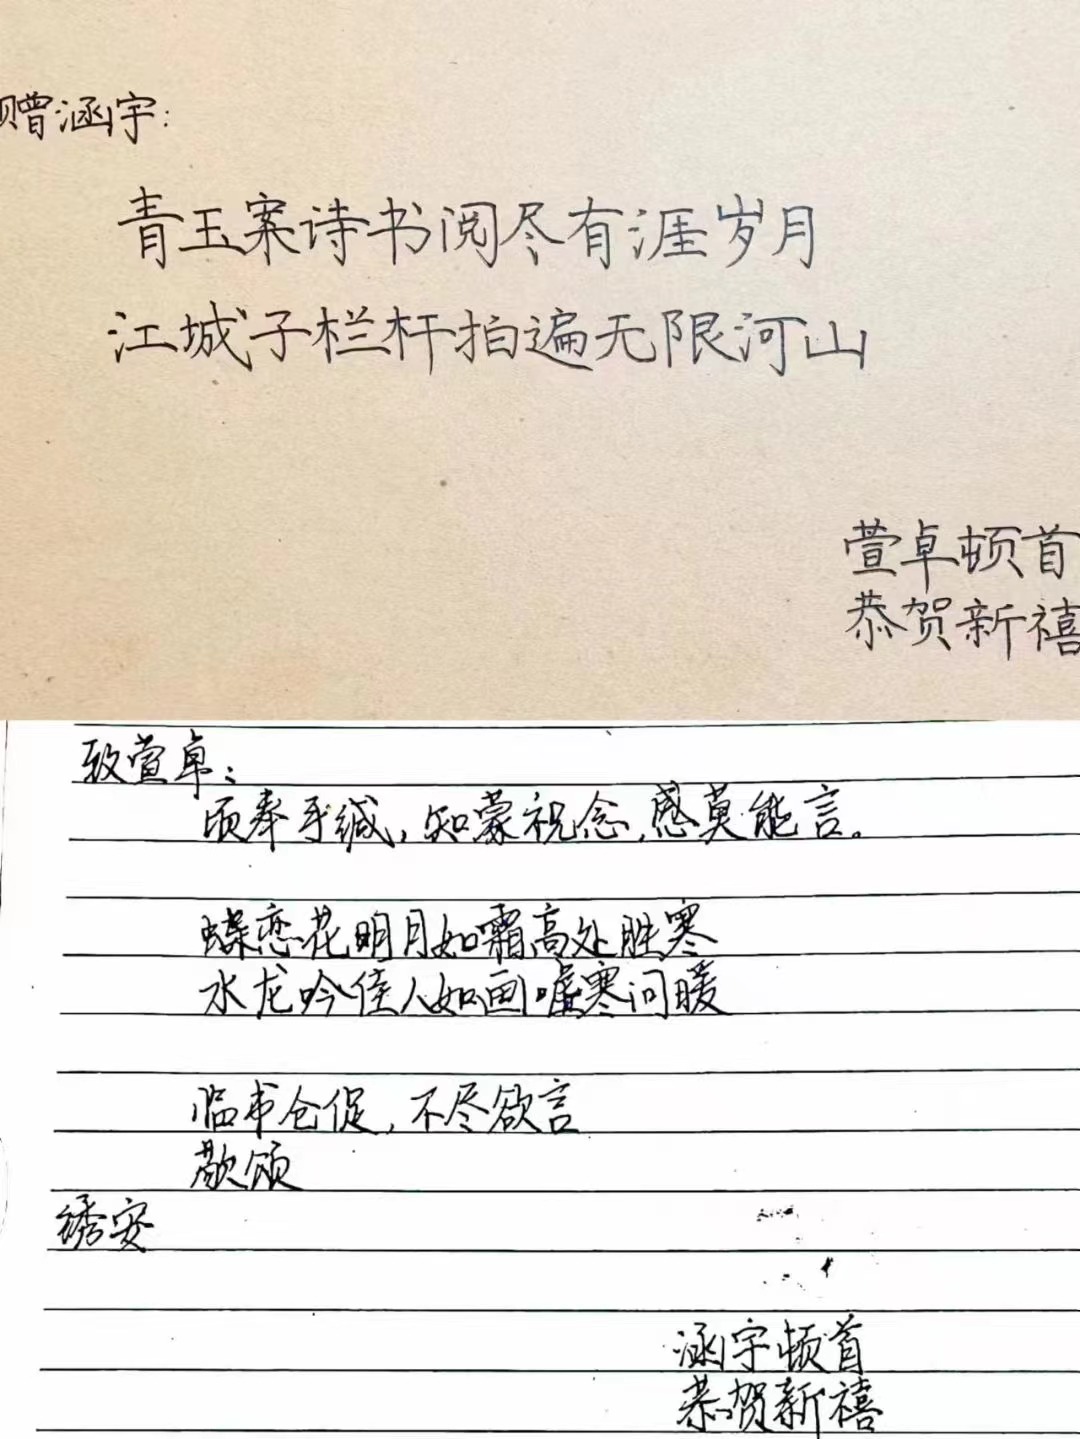 赠涵宇:
青玉案诗书阅尽有涯岁月
江城子栏杆拍遍无限河山
萱卓顿首
恭贺新禧
致萱卓:
顷奉手缄,知蒙祝念,感莫能言。
蝶恋花明月如霜高处胜寒
水龙吟佳人如画嘘寒问暖
临书仓促,不尽欲言
敬颂
绣安
涵宇顿首
恭贺新禧